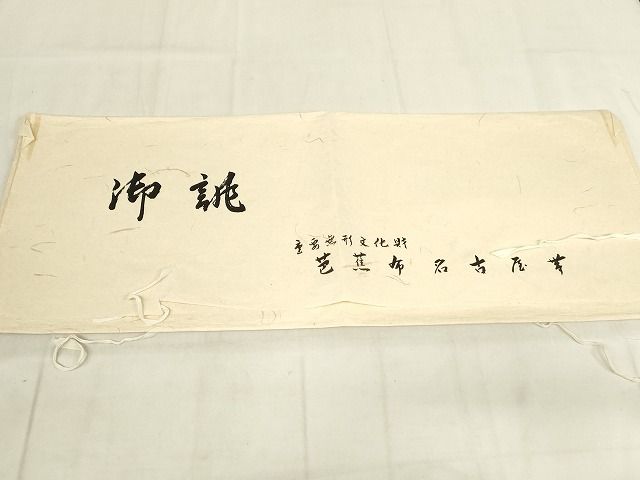 御誂
重要無形文化財
芭蕉布名古屋帯